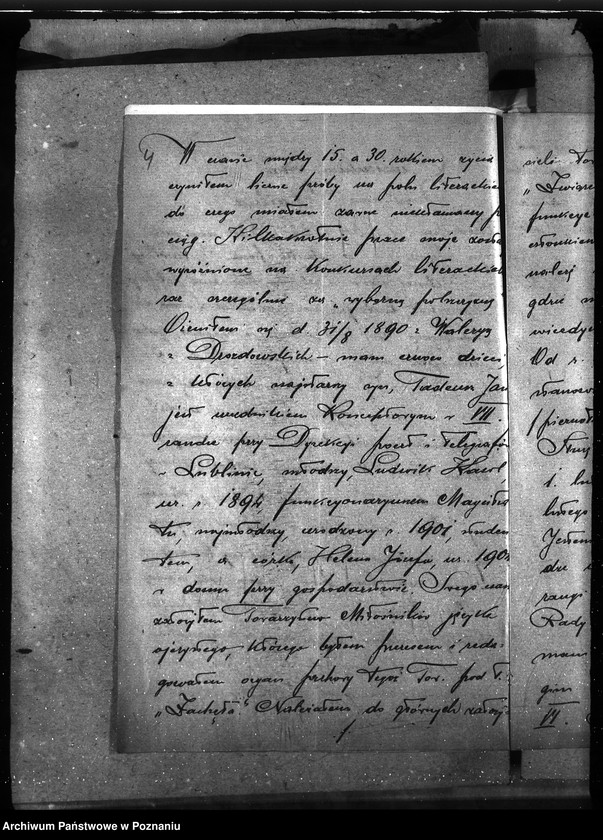 4/
W czasie między 15. a 30. rokiem życia
czyniłem liczne próby na polu literackie
do czego miałem zawsze niekłamany p
ciąg. Kilkakrotnie prace moje zosta
wyróżnione na konkursach literackich
raz szczególnie za "wyborną polszczyznę
Ożeniłem się d. 31/8 1890 z Walerya
z Drozdowskich – mam czworo dzieci,
z których najstarszy syn, Tadeusz Jan
jest urzędnikiem Konceptowym w VII.
randze przy Dyrekcji poczt i telegrafów
w Lublinie, młodszy, Ludwik Karol
ur. r. 1894, funkcyonaryuszem Magistra
tu, najmłodszy, urodzony r. 1901, studen
tem, a córka, Helena Józefa ur. 190
w domu przy gospodarstwie. Swego czas
założyłem Towarzystwo Miłośników języka
ojczystego, którego byłem prezesem i reda-
gowałem organ fachowy tegoż Tow. pod t.:
"Zachęta". Należałem do głównych założy-
sieli Tow
"Związe
funkcye
członkiem
należę
gdzie
wiedy
Od r.
stanow
/pierwot
1. lu
lutego
Jestem
rangi
Rady
mam
VI.